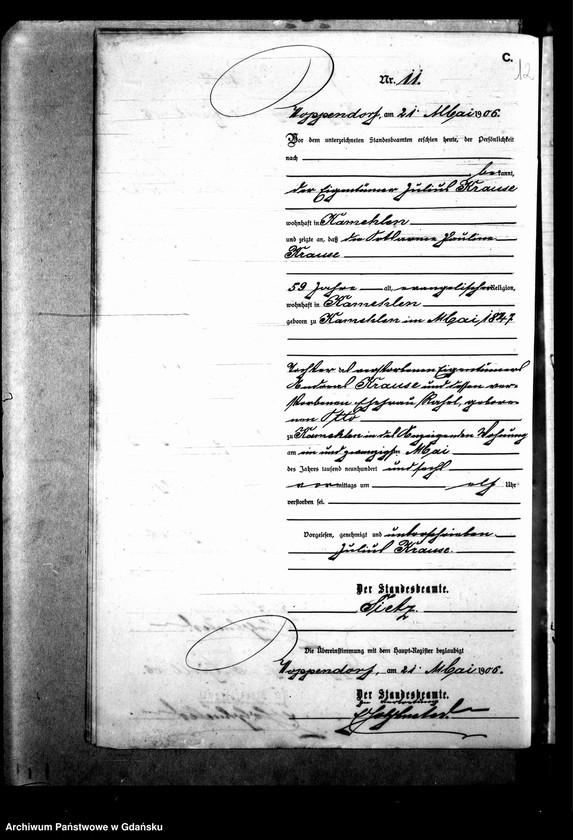 C.
12
Nr. 11.
Woppendorf, am 21. Mai 1906.
Vor dem unterzeichneten Standesbeamten erschien heute, der Persönlichkeit
nach
bekannt,
der Eigentümer Julius Krause
wohnhaft in Kamehlen
und zeigte an, daß die Ortsarme Pauline
Krause
59 Jahre alt, evangelischer Religion,
wohnhaft in Kamehlen
geboren zu Kamehlen im Mai 1847
Tochter des verstorbenen Eigentümers
Andreas Krause und dessen ver-
storbenen Ehefrau Rahel, gebore-
nen Otto
zu Kamehlen in des Anzeigenden Wohnung
am ein und zwanzigsten Mai
des Jahres tausend neunhundert und sechs
vormittags um elf Uhr
verstorben sei.
Vorgelesen, genehmigt und unterschrieben
Julius Krause.
Der Standesbeamte.
Die Übereinstimmung mit dem Haupt-Register beglaubigt
Woppendorf, am 21. Mai 1906.
Der Standesbeamte.
In Vertretung
Archiwum Państwowe w Gdańsku